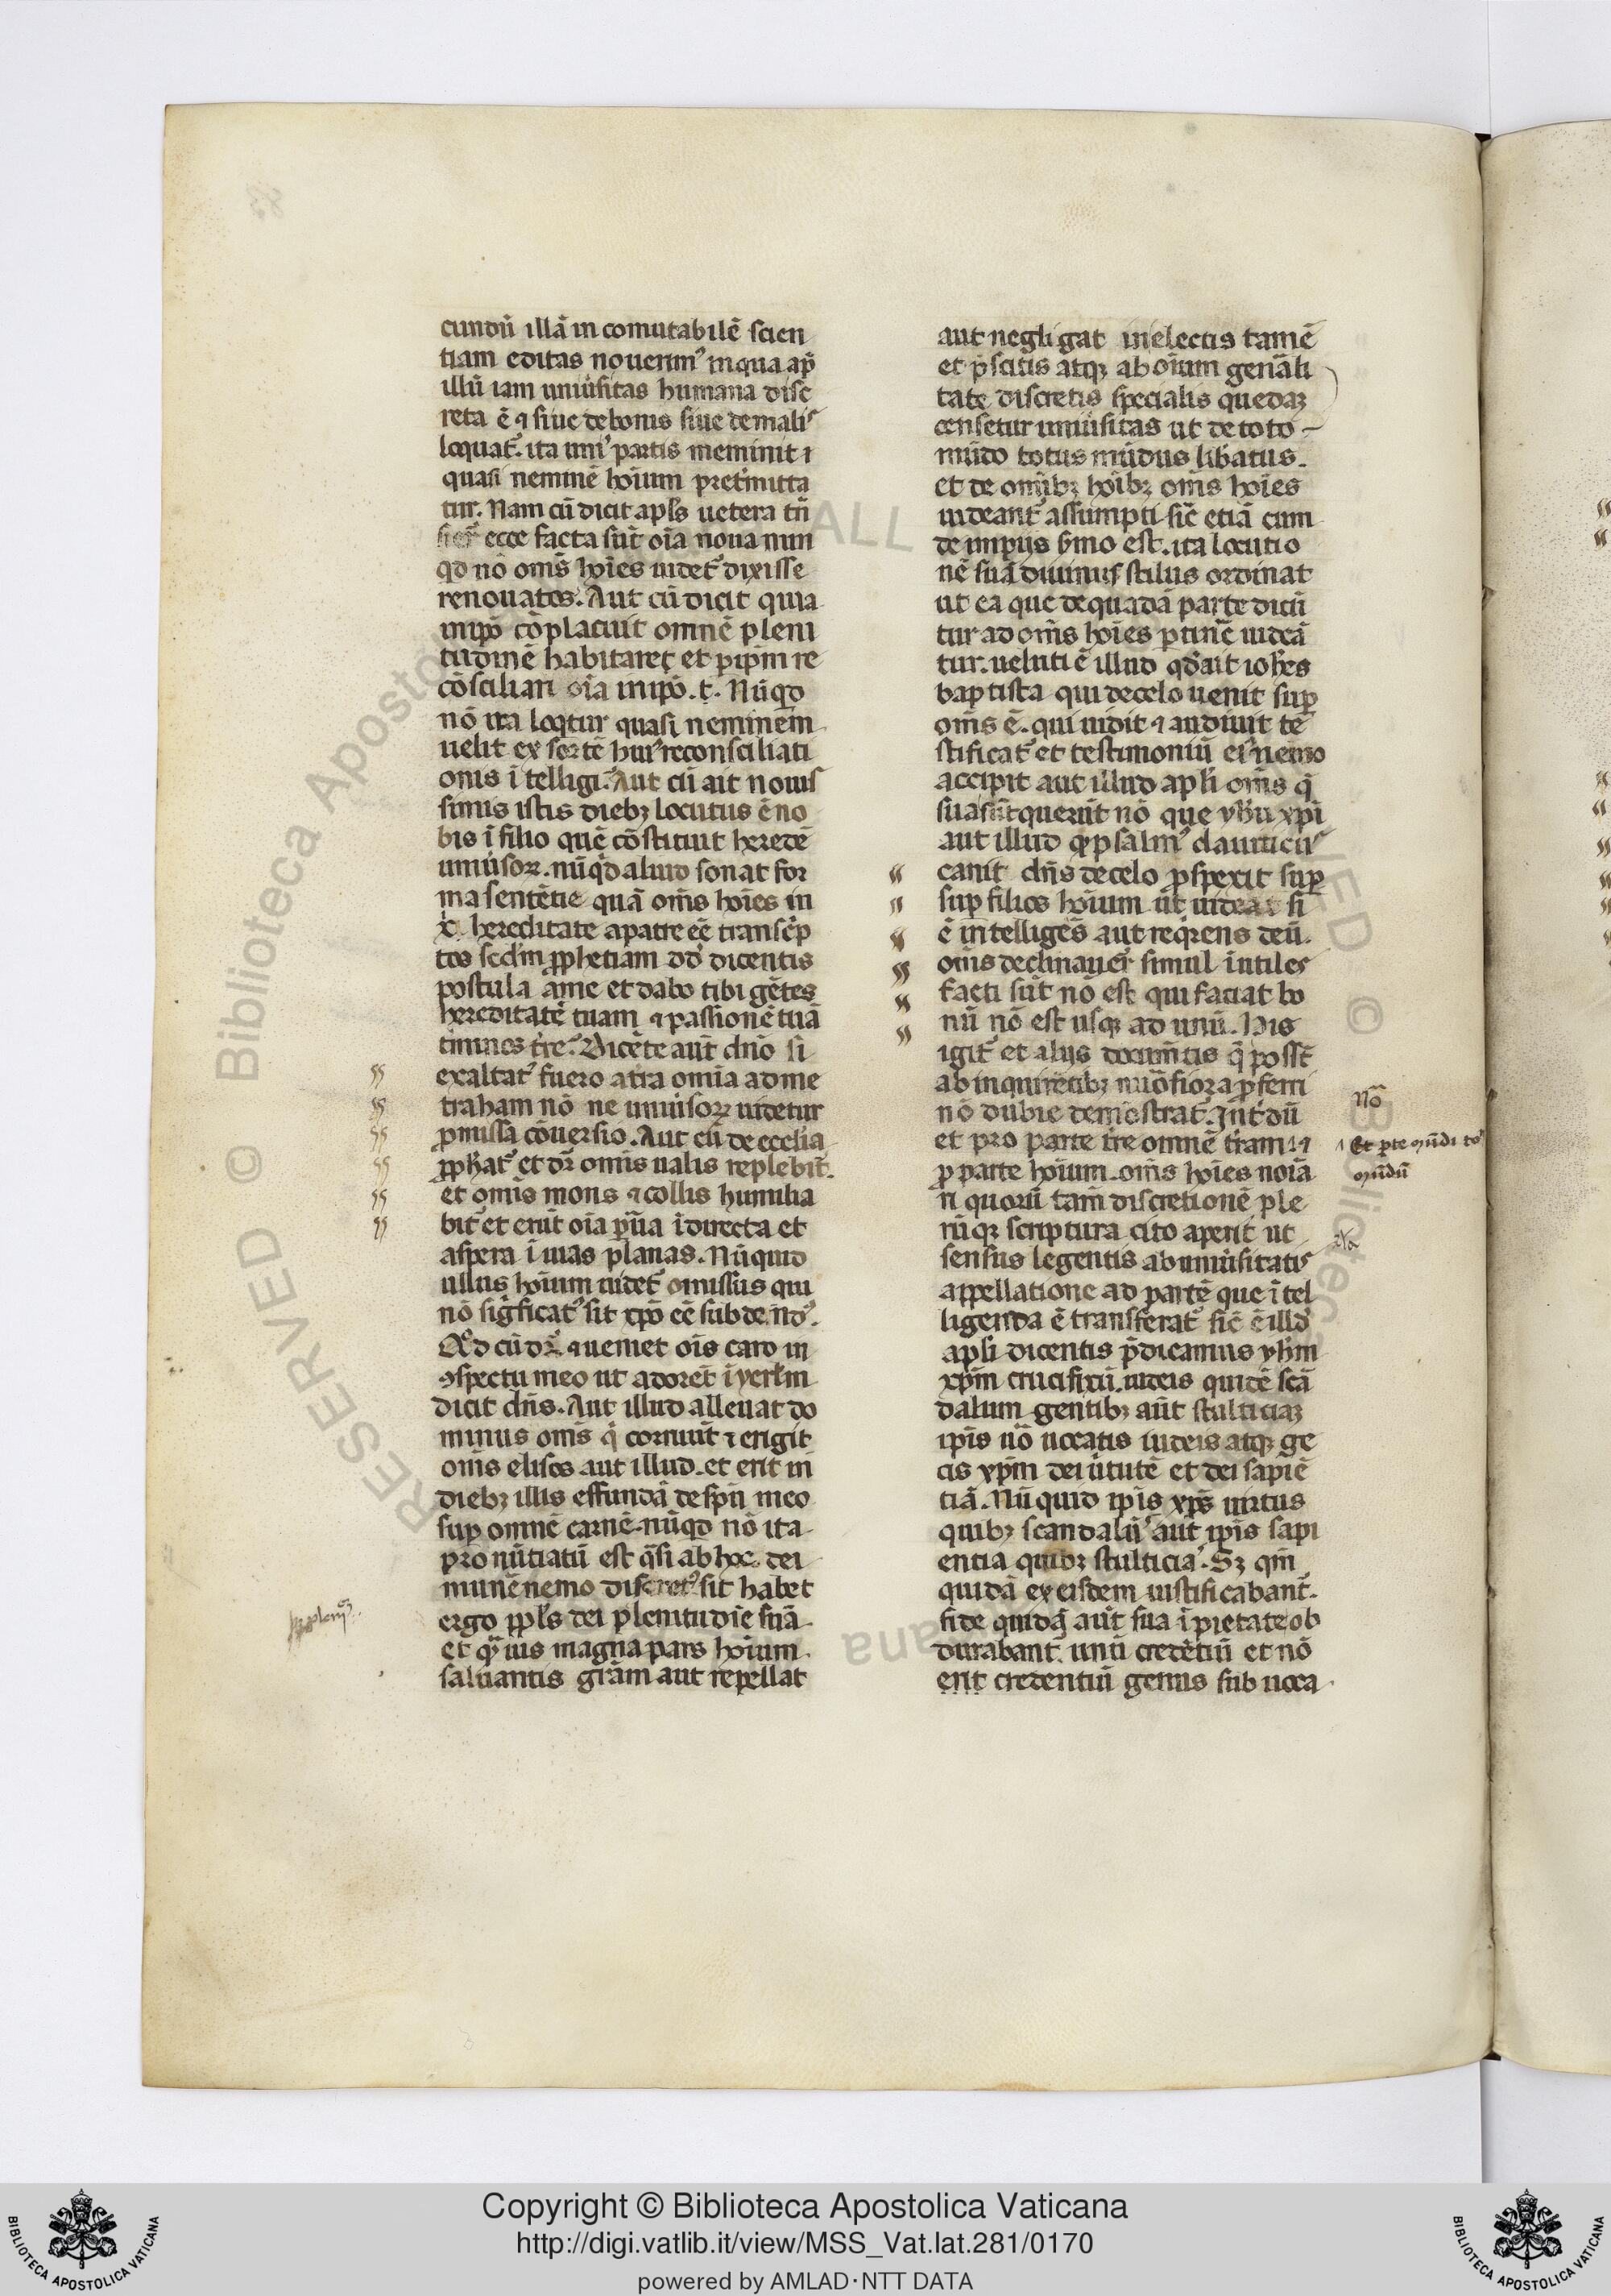 cundũ illã in comutabilẽ scien
tiam editas nouerim᷒ in qua ap᷑
illũ iam uniũsitas humana disc
reta ẽ ⁊ siue de bonis siue de malis
loquat᷑. ita uni᷒ partis meminit ⁊
quasi neminẽ hoĩum pret᷑mitta
tur. Nam cũ dicit apl̃s uetera t̃n
sier̃ ecce facta sũt oĩa noua nun
qd nõ om̃s hoĩes uidet᷑ dixisse
renouatos. Aut cũ dicit quia
in ip̃o cõplacuit omnẽ pleni
tudinẽ habitare; et p ip̃m re
cõsciliari oĩa in ip̃o. t̃. Nũqd
nõ ita loqtur quasi neminem
uelit exsortẽ hui᷒ reconsciliati
onis ĩtelligi. Aut cũ ait nouis
simis istis dieb; locutus ẽ no
bis ĩ filio quẽ cõstituit heredẽ
uniũsoꝝ. nũqd aliud sonat for
ma sentẽtie quã om̃s hoĩes in
x̃. hereditate a patre eẽ transcp̃
tos scd̃m ꝓphetiam dd̃ dicentis
postula a me et dabo tibi gẽtes
hereditatẽ tuam ⁊ passionẽ tuã
t̃minos t̃re. Dicẽte aũt dñõ si
exaltat᷒ fuero a t̃ra omĩa ad me
traham nõ ne uniũsoꝝ uidetur
ꝓmissa cõuersio. Aut cũ de ecclĩa
ꝓphat᷑ et dr̃ omĩs uallis replebit᷑.
et omĩs mons ⁊ collis humilia
bit᷑ et erũt oĩa pũa ĩ directa et
aspera ĩ uias planas. Nũquid
ullus hoĩum uidet᷑ omissus qui
nõ sig̃ficat᷒ sit xp̃o eẽ subdend᷒.
Aut cũ dr̃. ⁊ ueniet oĩs caro in
ↄspectu meo ut adoret ĩ yerl̃m
dicit dñs. Aut illud alleuat do
minus om̃s q̃ corruũt ⁊ erigit
om̃s elisos aut illud. et erit in
dieb; illis effundã de sp̃u meo
sup omnẽ carnẽ. nũqd nõ ita
pronũtiatũ est q̃si ab hoc dei
munẽ nemo discret᷒ sit habet
ergo ppl̃s dei plenitudiẽ suã
et quis magna pars hoĩum
saluantis gr̃am aut repellat
aut negligat in electis tamẽ
et p̃scitis atq; ab oĩum gen̄ali
tate discretis specialis quedaꝫ
censetur uniũsitas ut de toto
mũdo totus mũdus libatus.
et de omĩb; hoĩb; om̃s hoĩes
uideant᷑ assumpti sic̃ etiã cum
de impijs s̃mo est. ita locutio
nẽ suã diuinus stilus ordinat
ut ea que de quadã parte dicũ
tur ad om̃s hoĩes ptinẽ uideã
tur. ueluti ẽ illud qd ait ioh̃es
baptista qui de celo uenit sup
om̃s ẽ. qui uidit ⁊ audiuit te
stificat᷑ et testimoniũ ei᷒ nemo
accipit aut illud apl̃i om̃s q̃
sua sũt querũt nõ que yh̃u xp̃i
aut illud qd psalm᷒ dauiticus
canit dñs de celo ꝓspexit sup
sup filios hoĩum ut uideat si
ẽ intelligẽs aut reqrens deũ.
om̃s declinauer̃ simul ĩutiles
facti sũt nõ est qui faciat bo
nũ nõ est usq; ad unũ. His
igit᷑ et alijs documtĩs q̃ possẽt
ab inquirẽtib; nuõsiora ꝓferri
nõ dubie demõstrat᷑. Int᷑dũ
et pro parte t̃re omnẽ t̃ram. ⁊
ꝓ parte hoĩum. om̃s hoĩes noĩa
ri quorũ tam̃ discretionẽ ple
rũq; scriptura cito aperit ut
sensus legentis ab uniũsitatis
appellatione ad partẽ que ĩtel
ligenda ẽ transferat᷑ sic̃ ẽ illd
apl̃i dicentis p̃dicamus yh̃m
xp̃m crucifixũ. iudeis quidẽ scã
dalum gentib; aũt stulticiaꝫ
ip̃is uõ uocatis iudeis atq; ge
cis xp̃m dei ũtutẽ et dei sapiẽ
tiã. Nũquid ip̃is xp̃s uirtus
quib; scandalũ aut ip̃is sapi
entia quib; stulticia. Sꝫ qm̃
quidã ex eisdem iustificabant᷑.
fide quidã aũt sua ĩpietate ob
durabant᷑. unũ credẽtiũ et nõ
erit credentiũ genus sub uoca
Nõ
⁊ Et pte mũdi to᷒
mũdũ
Copyright © Biblioteca Apostolica Vaticana
http://digi.vatlib.it/view/MSS_Vat.lat.281/0170
powered by AMLAD·NTT DATA
BIBLIOTECA APOSTOLICA VATICANA
BIBLIOTECA APOSTOLICA VATICANA